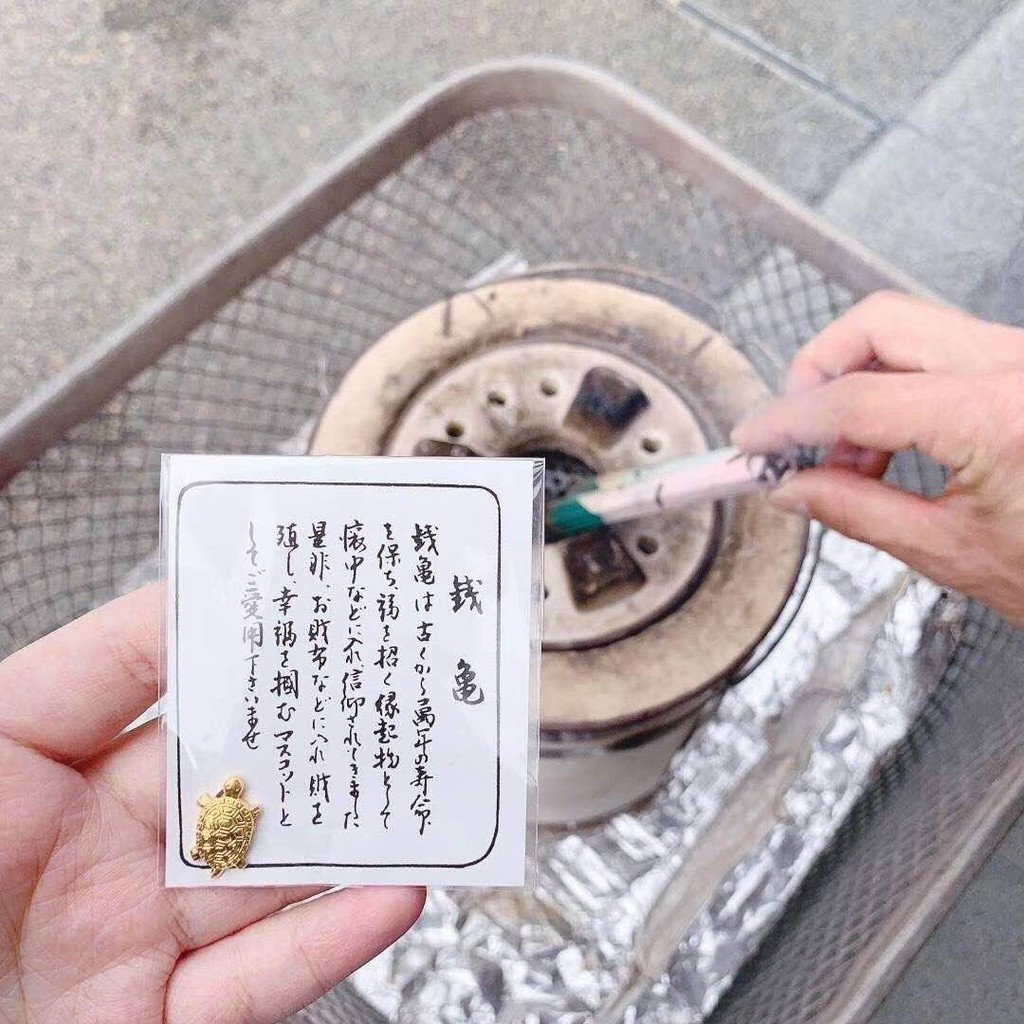 銭亀
銭亀は古くから萬年の寿命
を保ち福を招く縁起物として
懐中などに入れ信仰されてきました
是非、お財布などに入れ財を
殖し、幸福を掴むマスコットと
して、ご愛用下さいませ